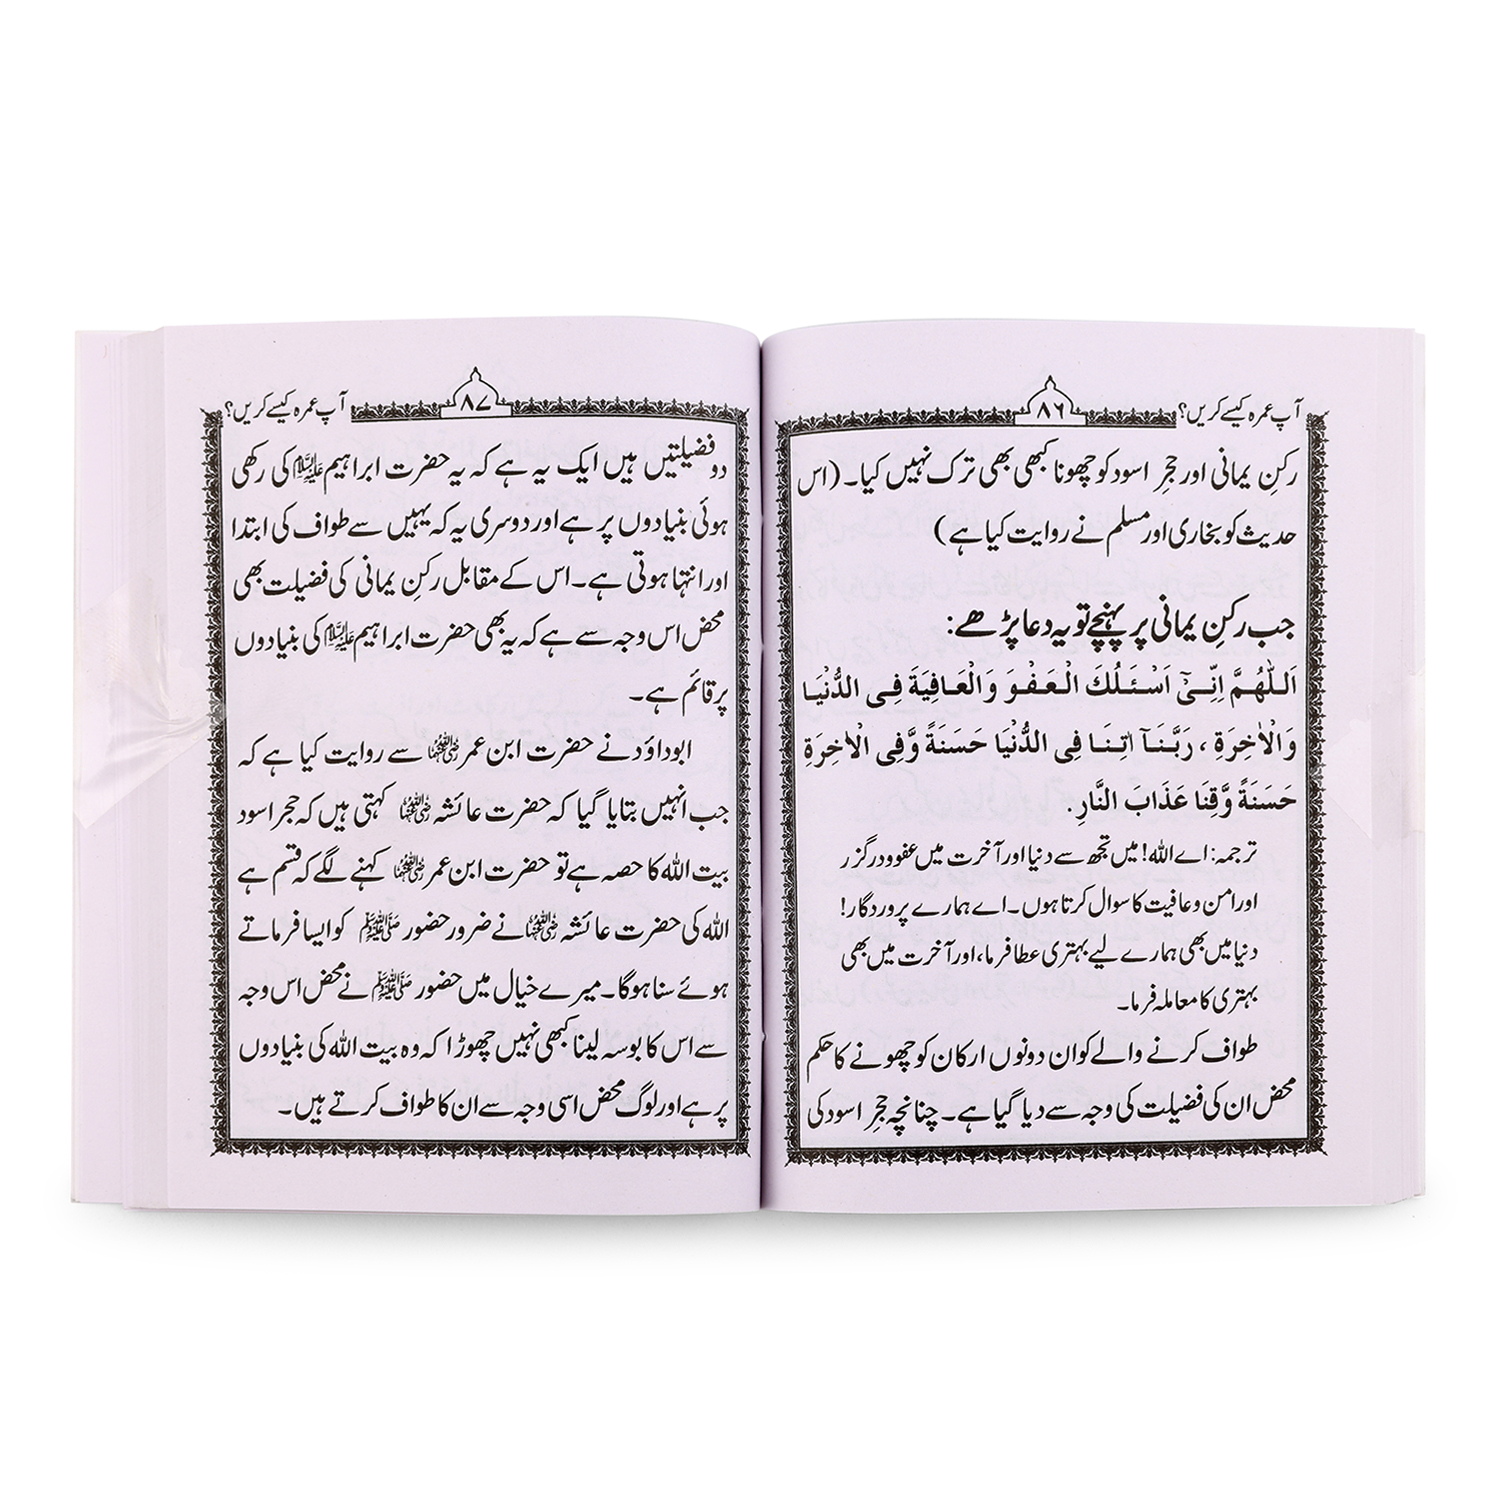 آپ عمرہ کیسے کریں؟
٨٦
رکنِ یمانی اور حجرِ اسود کو چھونا کبھی بھی ترک نہیں کیا۔ (اس
حدیث کو بخاری اور مسلم نے روایت کیا ہے)
جب رکنِ یمانی پر پہنچے تو یہ دعا پڑھے:
اَللّٰهُمَّ اِنِّیْٓ اَسْئَلُكَ الْعَفْوَ وَالْعَافِیَةَ فِی الدُّنْیَا
وَالْاٰخِرَةِ ، رَبَّنَآ اٰتِنَا فِی الدُّنْیَا حَسَنَةً وَّفِی الْاٰخِرَةِ
حَسَنَةً وَّقِنَا عَذَابَ النَّارِ.
ترجمہ: اے اللہ! میں تجھ سے دنیا اور آخرت میں عفو ودرگزر
اور امن وعافیت کا سوال کرتا ہوں۔ اے ہمارے پروردگار!
دنیا میں بھی ہمارے لیے بہتری عطا فرما، اور آخرت میں بھی
بہتری کا معاملہ فرما۔
طواف کرنے والے کو ان دونوں ارکان کو چھونے کا حکم
محض ان کی فضیلت کی وجہ سے دیا گیا ہے۔ چنانچہ حجرِ اسود کی
آپ عمرہ کیسے کریں؟
٨٧
دو فضیلتیں ہیں ایک یہ ہے کہ یہ حضرت ابراہیم علیہ السلام کی رکھی
ہوئی بنیادوں پر ہے اور دوسری یہ کہ یہیں سے طواف کی ابتدا
اور انتہا ہوتی ہے۔ اس کے مقابل رکنِ یمانی کی فضیلت بھی
محض اس وجہ سے ہے کہ یہ بھی حضرت ابراہیم علیہ السلام کی بنیادوں
پر قائم ہے۔
ابوداؤد نے حضرت ابن عمر رضی اللہ عنہما سے روایت کیا ہے کہ
جب انہیں بتایا گیا کہ حضرت عائشہ رضی اللہ عنہا کہتی ہیں کہ حجر اسود
بیت اللہ کا حصہ ہے تو حضرت ابن عمر رضی اللہ عنہما کہنے لگے کہ قسم ہے
اللہ کی حضرت عائشہ رضی اللہ عنہا نے ضرور حضور ﷺ کو ایسا فرماتے
ہوئے سنا ہوگا۔ میرے خیال میں حضور ﷺ نے محض اس وجہ
سے اس کا بوسہ لینا کبھی نہیں چھوڑا کہ وہ بیت اللہ کی بنیادوں
پر ہے اور لوگ محض اسی وجہ سے ان کا طواف کرتے ہیں۔